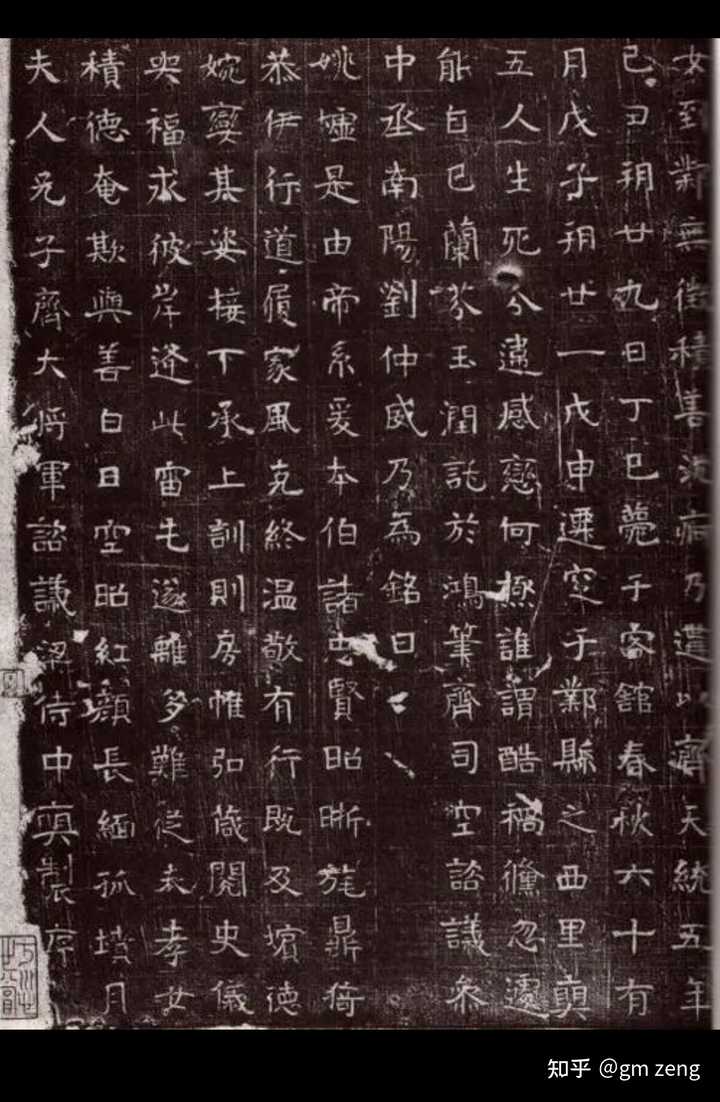 女到鄴無徵積善沉痾乃遘以齊天統五年
己丑朔廿九日丁巳薨于客舘春秋六十有
月戊子朔廿一戊申遷窆于鄴縣之西里奠
五人生死分違感戀何極誰謂酷禍儻忽遷
能白巳蘭芬玉潤託於鴻筆齊司空諮議叅
中丞南陽劉仲威乃為銘曰
姚墟是由帝系爰本伯諸忠賢昭晣旄鼎猗
恭伊行道履家風克終温敬有行既及嬪德
婉孌其姿接下承上訓則房帷弘箴閱史儀
哭福求彼岸逢此雷屯遂離多難從未孝女
積德奄欺與善白日空昭紅顏長緬孤墳月
夫人兄子齊大將軍諮議沼侍中奠製序
知乎 @gm zeng